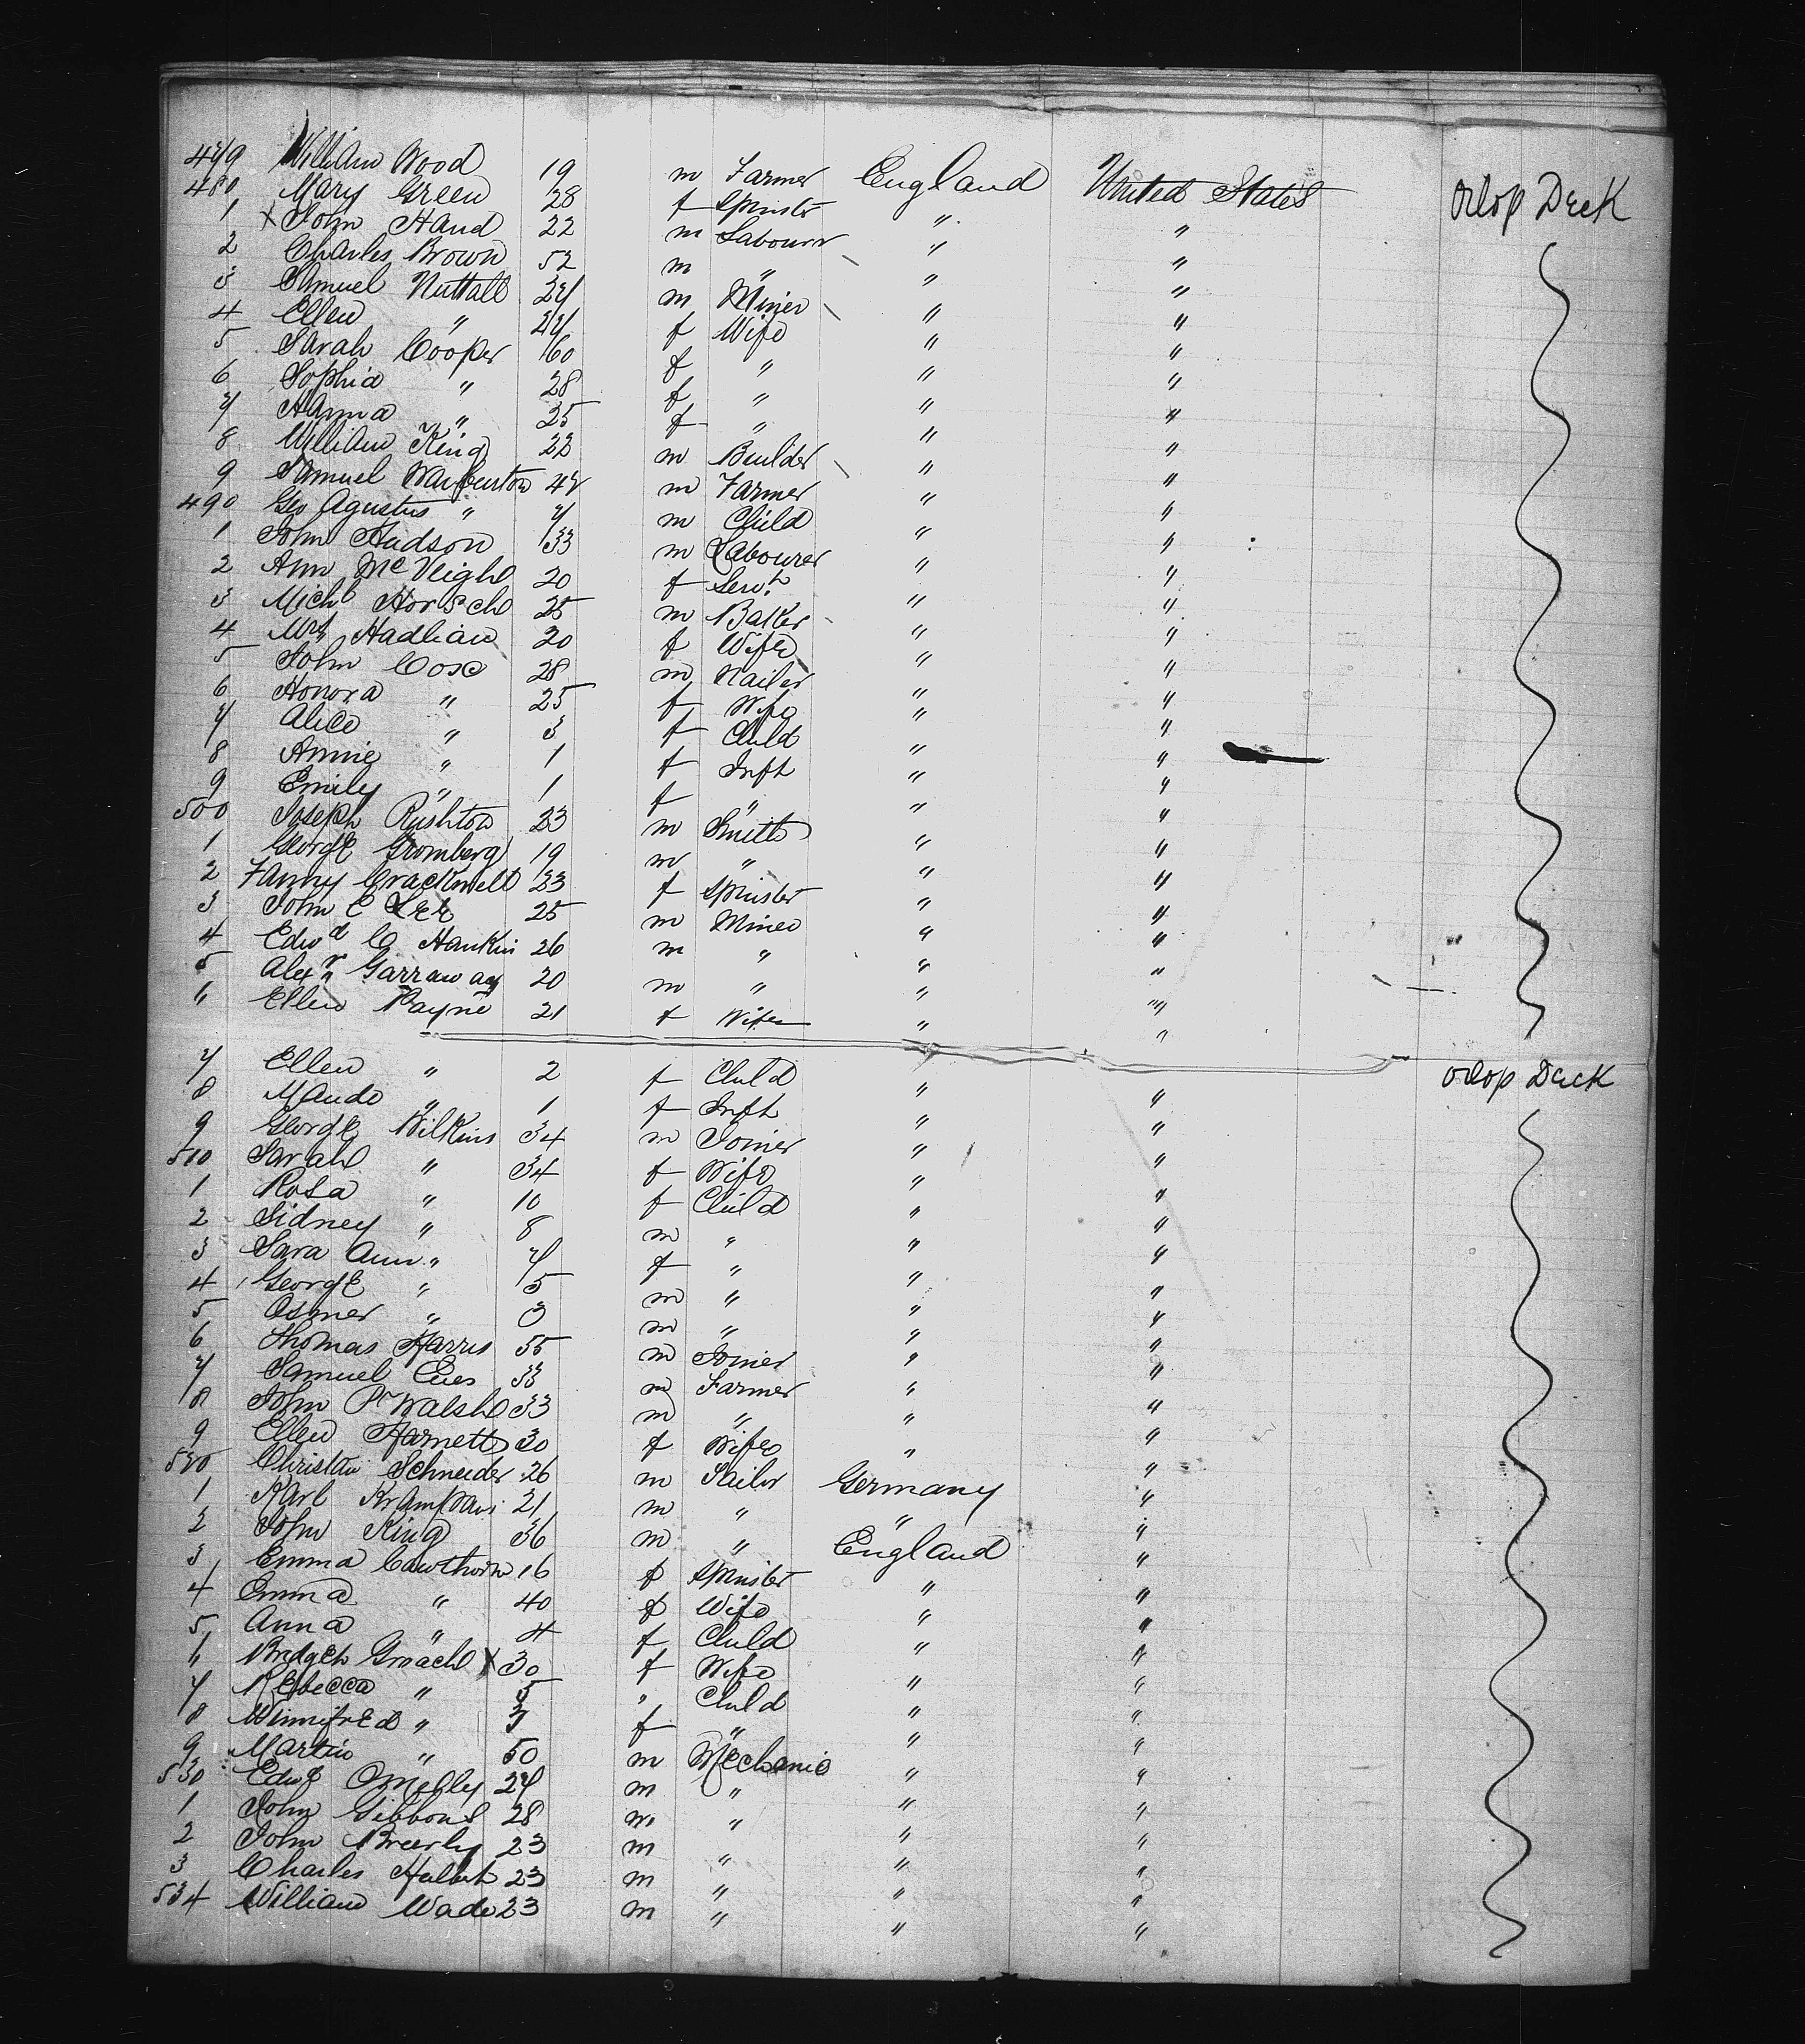 479 William Wood 19 m Farmer England United States Orlop Deck
480 Mary Green 28 f Spinster " "
1 x John Hand 22 m Labourer " "
2 Charles Brown 52 m " " "
3 Samuel Nuttall 27 m Miner " "
4 Ellen " 27 f Wife " "
5 Sarah Cooper 60 f " " "
6 Sophia " 28 f " " "
7 Hanna " 25 f " " "
8 William King 22 m Builder " "
9 Samuel Warburton 42 m Farmer " "
490 Geo Agustus " 7 m Child " "
1 John Hudson 33 m Labourer " "
2 Ann McVeigh 20 f Servt " "
3 Michl Horsch 25 m Baker " "
4 Mrs Hadlian 20 f Wife " "
5 John Cose 28 m Nailer " "
6 Honora " 25 f Wife " "
7 Alice " 3 f Child " "
8 Annie " 1 f Inft " "
9 Emily " 1 f " " "
500 Joseph Rushton 23 m Smith " "
1 George Gromberg 19 m " " "
2 Fanny Cracknell 23 f Spinster " "
3 John C Lee 25 m Miner " "
4 Edwd C Hankin 26 m " " "
5 Alexr Garraway 20 m " " "
6 Ellen Payne 21 f Wife " "
7 Ellen " 2 f Child " " Orlop Deck
8 Maude " 1 f Inft " "
9 George Wilkins 34 m Joiner " "
510 Sarah " 34 f Wife " "
1 Rosa " 10 f Child " "
2 Sidney " 8 m " " "
3 Sara Ann " 7 f " " "
4 George " 5 m " " "
5 Osmer " 3 m " " "
6 Thomas Harris 55 m Joiner " "
7 Samuel Eves 33 m Farmer " "
8 John Pr Walsh 33 m " " "
9 Ellen Harnett 30 f Wife " "
520 Christan Schneider 26 m Sailor Germany "
1 Karl 21 m " " "
2 John King 36 m " England "
3 Emma Cawthorn 16 f Spinster " "
4 Emma " 40 f Wife " "
5 Anna " 4 f Child " "
6 Bridget Groach x 30 f Wife " "
7 Rebecca " 5 " Child " "
8 Winnifred " 3 f " " "
9 Martin " 50 m Mechanic " "
530 Edwd OMelly 27 m " " "
1 John Gibbons 28 m " " "
2 John Breerly 23 m " " "
3 Charles Hulbert 23 m " " "
534 William Wade 23 m " " "